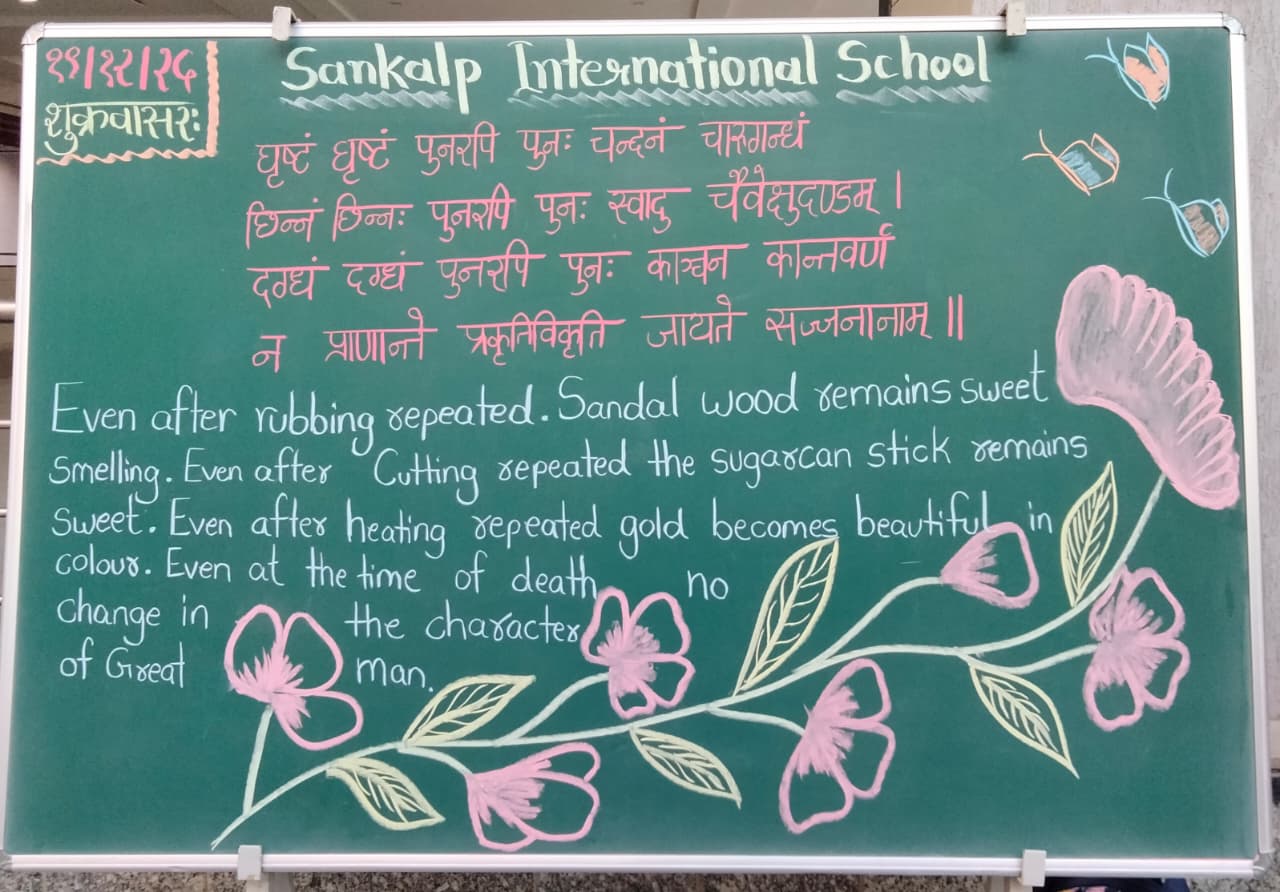 १९/१२/२५
शुक्रवासरः
Sankalp International School
घृष्टं घृष्टं पुनरपि पुनः चन्दनं चारुगन्धं
छिन्नं छिन्नः पुनरपि पुनः स्वादु चैवेक्षुदण्डम् ।
दग्धं दग्धं पुनरपि पुनः काञ्चन कान्तवर्ण
न प्राणान्ते प्रकृतिविकृति जायते सज्जनानाम् ॥
Even after rubbing repeated. Sandal wood remains sweet
smelling. Even after Cutting repeated the sugarcan stick remains
sweet. Even after heating repeated gold becomes beautiful in
colour. Even at the time of death no
change in the character
of Great man.